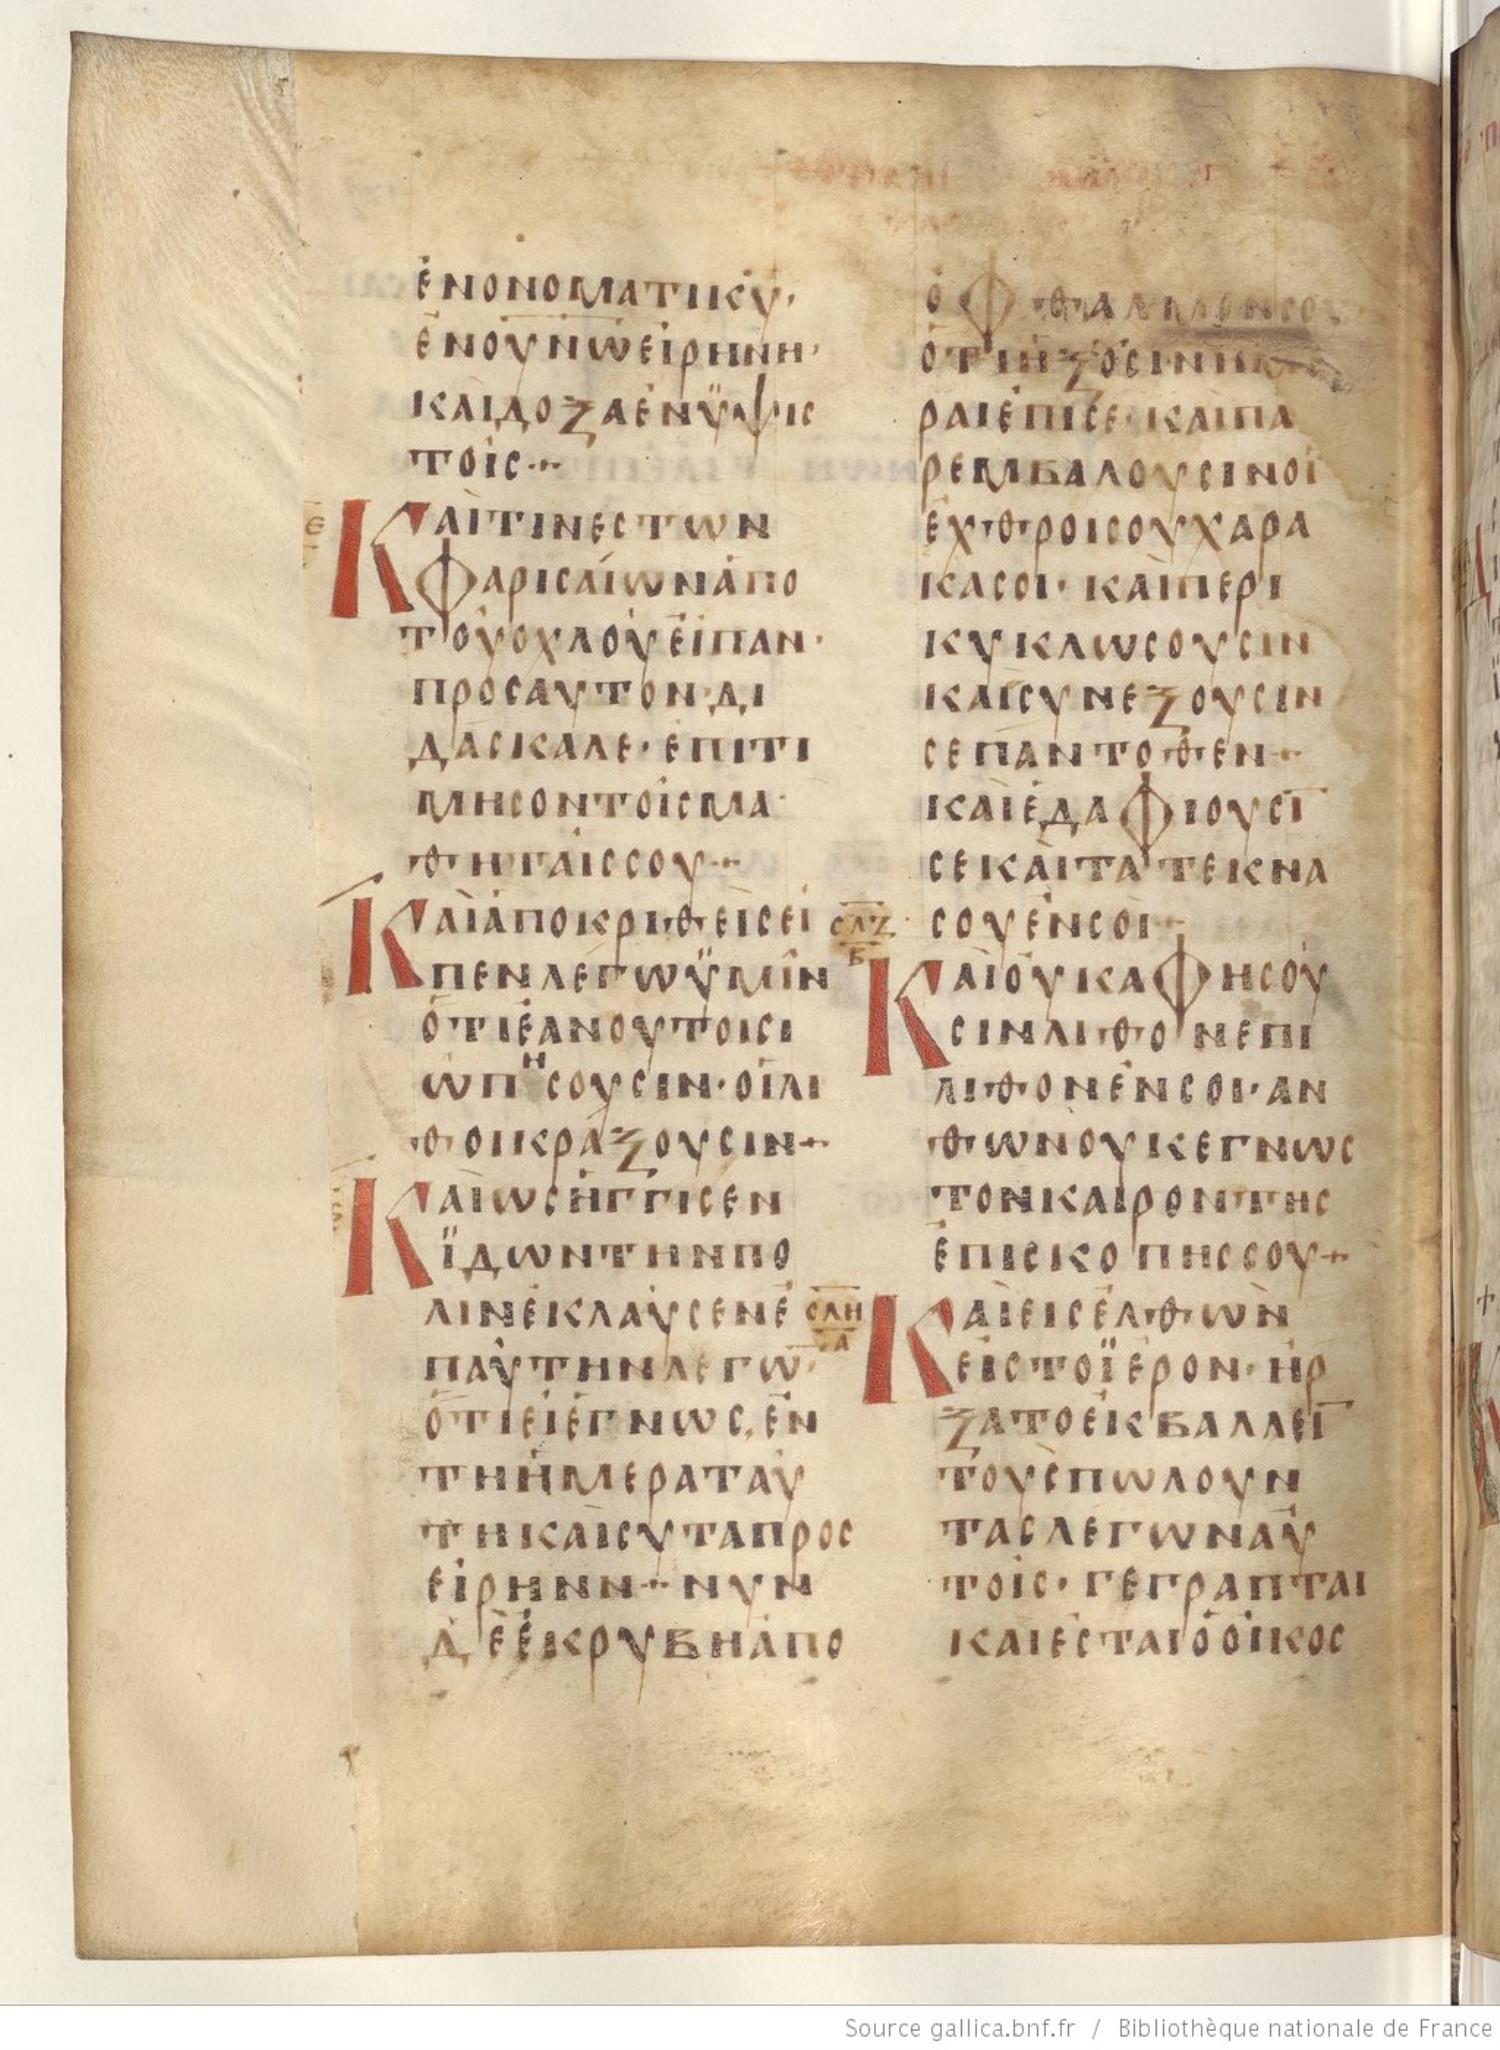 ἐνονοματικ̅υ̅·
ἐνο̅υ̅ν̅ωειρηνη·
καιδοξαἐνϋψις
τοις··
Καὶτινεστων
φαρισαίωνἀπο
τοὐοχλοὐεἰπαν·
προσαυτον·δι
δασκαλε·ἐπιτι
μησοντοισμα
θηταισσου··
Καὶἀποκριθεὶσεἰ
πενλεγωϋμῖν
ὅτιἐανουτοισι
ωπησουσιν·οἱλι
θοικραξουσιν··
Καὶωσἠγγισεν
ϊδωντηνπο
λινἐκλαυσενἐ
παὐτηνλεγω̅·
ὅτιἐιἐγνωσ,ἐν
τηἡμεραταυ
τηκαὶσυταπρος
εἰρηνν··νυν
δὲἐκρυβηἀπο
ὀφθαλμωνσου
ὅτιηξοσινημε
ραιἐπισε·καιπα
ρεμβαλουσινοἱ
ἐχθροισουχαρα
κασοι·καὶπερι
κυκλωσουσιν
καὶσυνεξουσιν
σεπαντοθεν··
καὶἐδαφιουσι̅
σεκαὶτατεκνα
σουἐνσοὶ··
σλζ
β
Καὶοὐκαφησου
σινλιθονεπι
λιθονἐνσοι·αν
θωνοὐκεγνως
τονκαιροντης
ἐπισκοπησσου··
σλη
α
Καὶεισελθων
εἰστοϊερον·ἠρ
ξατοἐκβαλλει̅
τουσπωλουν
τασλεγωναὐ
τοις·γεγραπται
καιἐσταιὁοἰκος
Source gallica.bnf.fr / Bibliothèque nationale de France